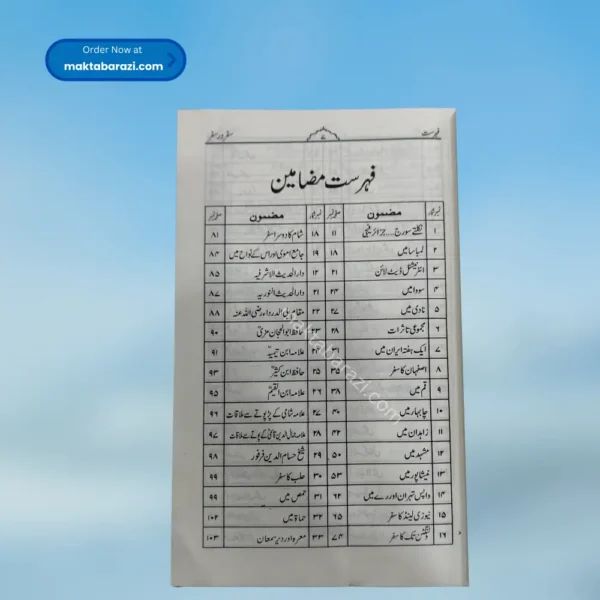 Order Now at
maktabarazi.com
فہرست ۷ سفر در سفر
فہرست مضامین
نمبر شمار مضمون صفحہ نمبر نمبر شمار مضمون صفحہ نمبر
۱ نکلتے سورج....جزائر فیجی ۱۱ ۱۸ شام کا دوسرا سفر ۸۱
۲ لمباسا میں ۱۸ ۱۹ جامع اموی اور اس کے نواح میں ۸۴
۳ انٹرنیشنل ڈیٹ لائن ۲۱ دارالحدیث الاشرفیہ ۸۵
۴ سووا میں ۲۴ ۲۱ دارالحدیث النوریہ ۸۷
۵ نادی میں ۲۷ ۲۲ مقام ابی الدرداء رضی اللہ عنہ ۸۸
۶ مجموعی تاثرات ۲۸ ۲۳ حافظ ابوالحجاج مزیؒ ۹۰
۷ ایک ہفتہ ایران میں ۳۱ ۲۴ علامہ ابن تیمیہؒ ۹۱
۸ اصفہان کا سفر ۳۵ ۲۵ حافظ ابن کثیرؒ ۹۳
۹ قم میں ۳۸ ۲۶ علامہ ابن القیمؒ ۹۵
۱۰ چابہار میں ۴۰ ۲۷ علامہ شامی کے پڑپوتے سے ملاقات ۹۶
۱۱ زاہدان میں ۴۲ ۲۸ علامہ جمال الدین قاسمیؒ کے پوتے سے ملاقات ۹۷
۱۲ مشہد میں ۵۰ ۲۹ شیخ حسام الدین فرفور ۹۸
۱۳ نیشاپور میں ۵۳ ۳۰ حلب کا سفر ۹۹
۱۴ واپس تہران اور رے میں ۶۲ ۳۱ حمص میں ۹۹
۱۵ نیوزی لینڈ کا سفر ۶۵ ۳۲ حماۃ میں ۱۰۲
۱۶ ولنگٹن تک کا سفر ۷۴ ۳۳ معرہ اور دیر سمعان ۱۰۳
maktabarazi.com